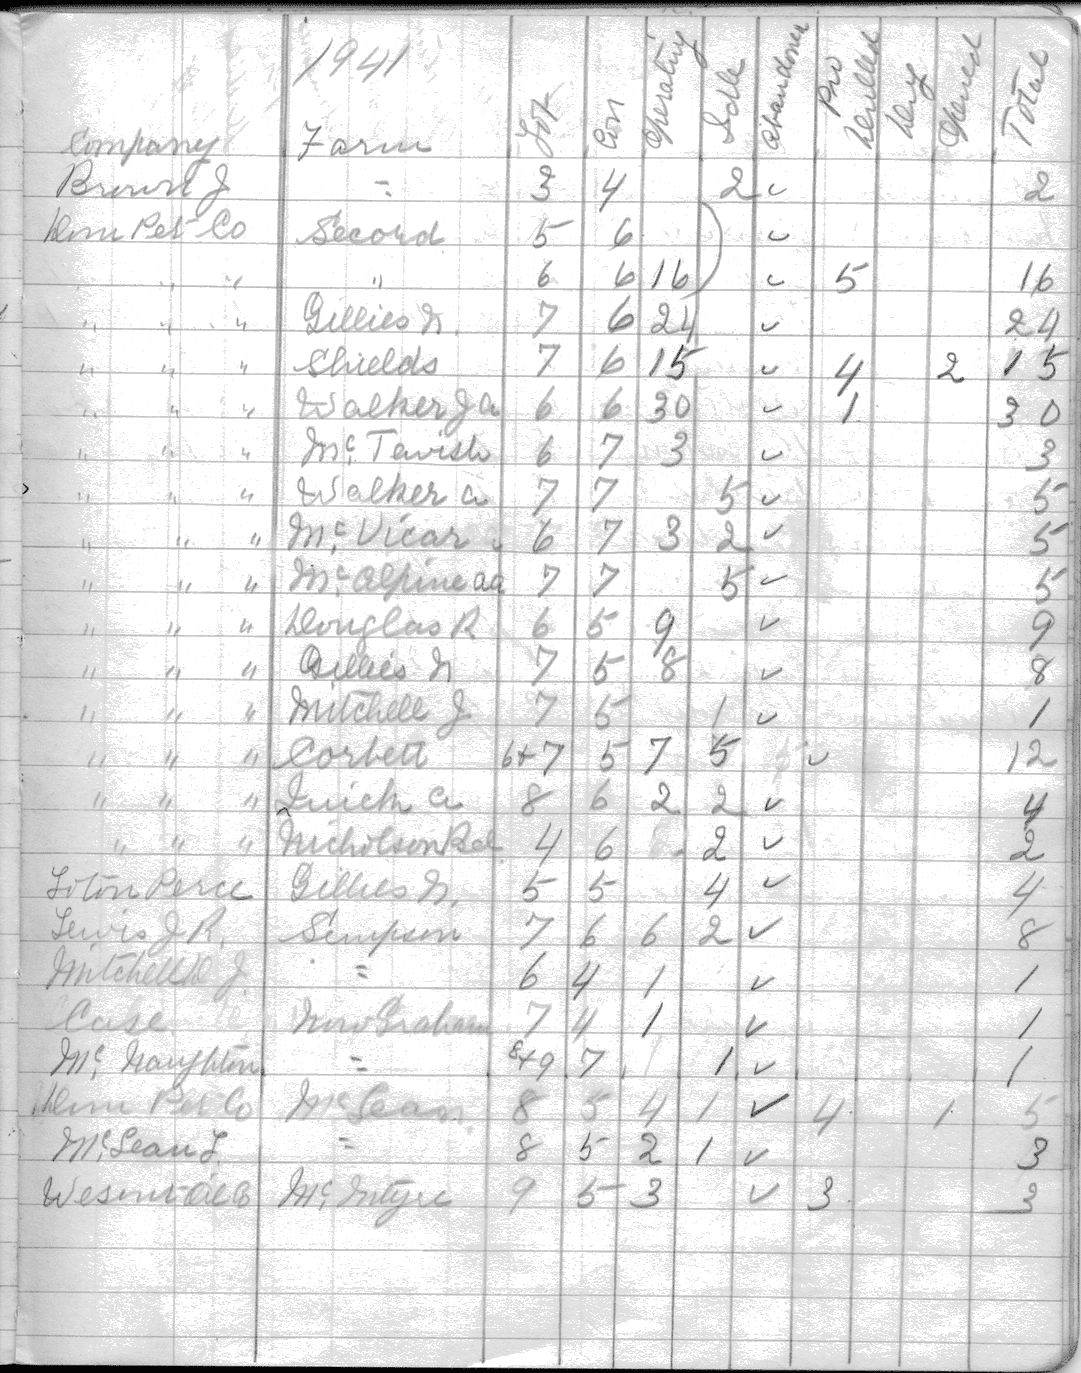 1941
Company Farm Lot Con Operating Idle Abandoned Pro Drilled Dry Opened Total
Brown J = 3 4 2 ✓ 2
Dom Pet Co Secord 5 6 ✓
" " " 6 6 16 ✓ 5 16
" " " Gillies N. 7 6 24 ✓ 24
" " " Shields 7 6 15 ✓ 4 2 15
" " " Walker J A 6 6 30 ✓ 1 30
" " " Mc Tavish 6 7 3 ✓ 3
" " " Walker A 7 7 5 ✓ 5
" " " Mc Vicar 6 7 3 2 ✓ 5
" " " Mc Alpine AA 7 7 5 ✓ 5
" " " Douglas R 6 5 9 ✓ 9
" " " Gillies N 7 5 8 ✓ 8
" " " Mitchell J 7 5 1 ✓ 1
" " " Corbett 6+7 5 7 5 ✓ 12
" " " A 8 6 2 2 ✓ 4
" " " Nicholson 4 6 2 ✓ 2
Perce Gillies N. 5 5 4 ✓ 4
Lewis J R. Simpson 7 6 6 2 ✓ 8
Mitchell D J. = 6 4 1 ✓ 1
Case Graham 7 4 1 ✓ 1
Mc Naughton = 8+9 7 1 ✓ 1
Dom Pet Co McLean 8 5 4 1 ✓ 4 1 5
Mc Lean L. = 8 5 2 1 ✓ 3
Mc Intyre 9 5 3 ✓ 3 3